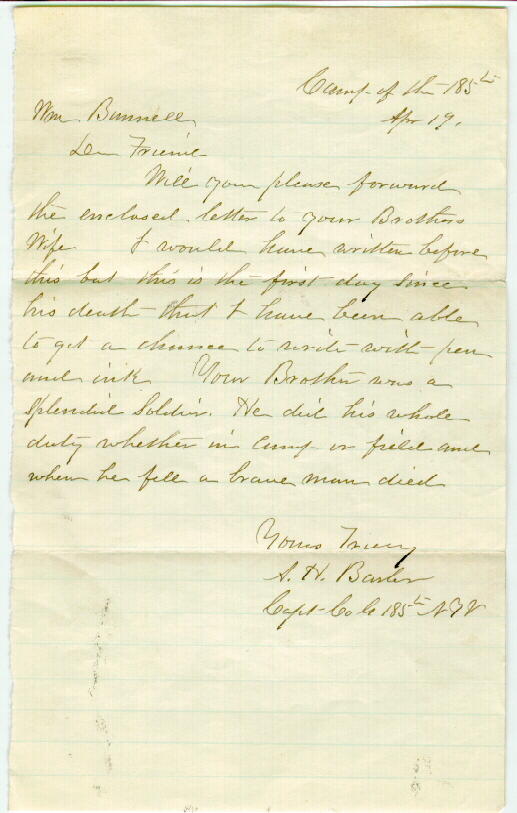 Camp of the 185th
Apr 19.
Wm Bunnell
Dear Friend
Will you please forward
the enclosed letter to your Brothers
Wife I would have written before
this but this is the first day since
his death that I have been able
to get a chance to write with pen
and ink Your Brother was a
Splendid Soldier. He did his whole
duty whether in Camp or field and
when he fell a brave man died
Yours Truly
A. H. Barber
Capt Co 185th NYV